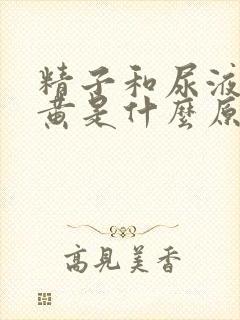 精子和尿液
黄是什麼原
高見美香